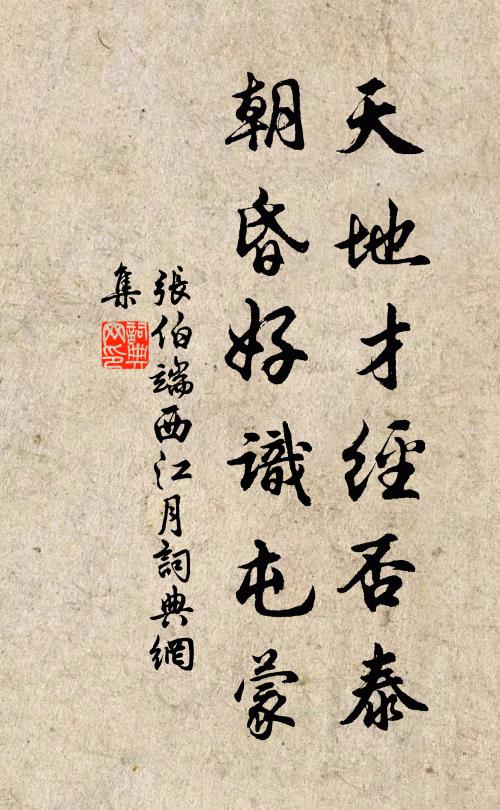 天地才經否泰
朝昏好識屯蒙
張伯端西江月詞典網
集
詞典網印